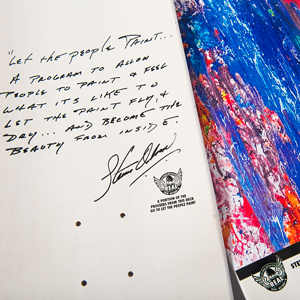 "LET THE PEOPLE PAINT...
A PROGRAM TO ALLOW
PEOPLE TO PAINT & FEEL
WHAT ITS LIKE TO
LET THE PAINT FLY, &
DRY... AND BECOME THE
BEAUTY FROM INSIDE.
REAL
A PORTION OF THE
PROCEEDS FROM THIS DECK
GO TO LET THE PEOPLE PAINT
REAL
STE